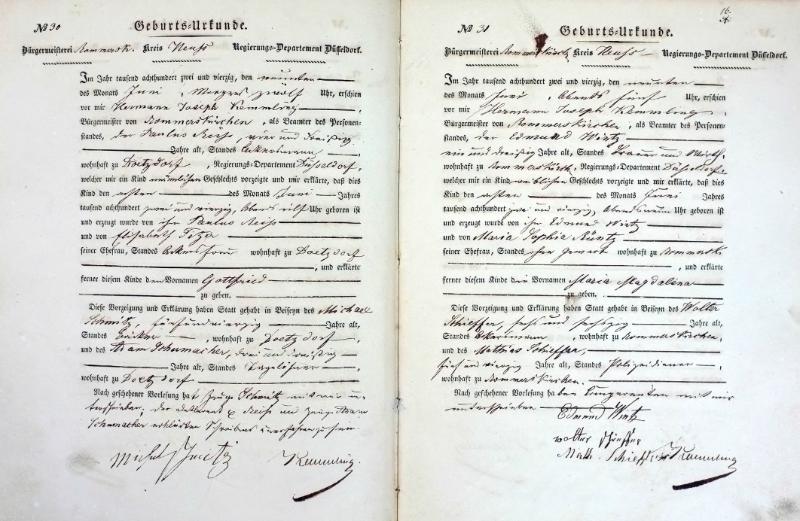 No 30
Geburts-Urkunde.
Bürgermeisterei Rommersk. Kreis Neuss Regierungs-Departement Düsseldorf.
Im Jahr tausend achthundert zwei und vierzig, den neunten
des Monats Juni, Morgens zwölf Uhr, erschien
vor mir Hermann Joseph Kemmling
Bürgermeister von Rommerskirchen, als Beamter des Personen-
standes, der Paulus Reiss, vier und dreißig
Jahre alt, Standes Ackersmann
wohnhaft zu Doetzdorf, Regierungs-Departement Düsseldorf,
welcher mir ein Kind männlichen Geschlechts vorzeigte und mir erklärte, daß dies
Kind den ersten des Monats Juni Jahres
tausend achthundert zwei und vierzig, Abends elf Uhr geboren ist
und erzeugt wurde von ihm Paulus Reiss
und von Elisabeth
seiner Ehefrau, Standes Ackersfrau wohnhaft zu Doetzdorf
, und erklärte
ferner diesem Kinde den Vornamen Gottfried
zu geben.
Diese Vorzeigung und Erklärung haben Statt gehabt in Beiseyn des Michael
Schmitz, fünfundvierzig Jahre alt,
Standes, wohnhaft zu Doetzdorf
und des Adam Schumacher, drei und dreißig
Jahre alt, Standes Tagelöhner
wohnhaft zu Doetzdorf
Nach geschehener Vorlesung hat Zeuge Schmitz mit mir un-
terschrieben, der Declarant Reiss und Zeuge Adam
Schumacher erklärten Schreibens unerfahren zu sein
Kemmling.
16.
No 31
Geburts-Urkunde.
Bürgermeisterei Rommerskirch Kreis Neuss Regierungs-Departement Düsseldorf.
Im Jahr tausend achthundert zwei und vierzig, den neunten
des Monats Juni, Abends fünf Uhr, erschien
vor mir Hermann Joseph Kemmling
Bürgermeister von Rommerskirchen, als Beamter des Personen-
standes, der Edmund Wirtz
ein und dreißig Jahre alt, Standes
wohnhaft zu Rommerskirch, Regierungs-Departement Düsseldorf,
welcher mir ein Kind weiblichen Geschlechts vorzeigte und mir erklärte, daß dies
Kind den ersten des Monats Juni Jahres
tausend achthundert zwei und vierzig, Abends neun Uhr geboren ist
und erzeugt wurde von ihm Edmund Wirtz
und von Maria Sophia
seiner Ehefrau, Standes wohnhaft zu Rommersk
, und erklärte
ferner diesem Kinde den Vornamen Maria Magdalena
zu geben.
Diese Vorzeigung und Erklärung haben Statt gehabt in Beiseyn des Wolter
Schieffer, sechs und sechszig Jahre alt,
Standes Ackermann, wohnhaft zu Rommerskirchen,
und des Mathias Schieffer,
fünf und vierzig Jahre alt, Standes Polizeidiener
wohnhaft zu Rommerskirchen.
Nach geschehener Vorlesung haben Comparenten mit mir
unterschrieben Edmund Wirtz
wolter schieffer
Math. Schieffer Kemmling